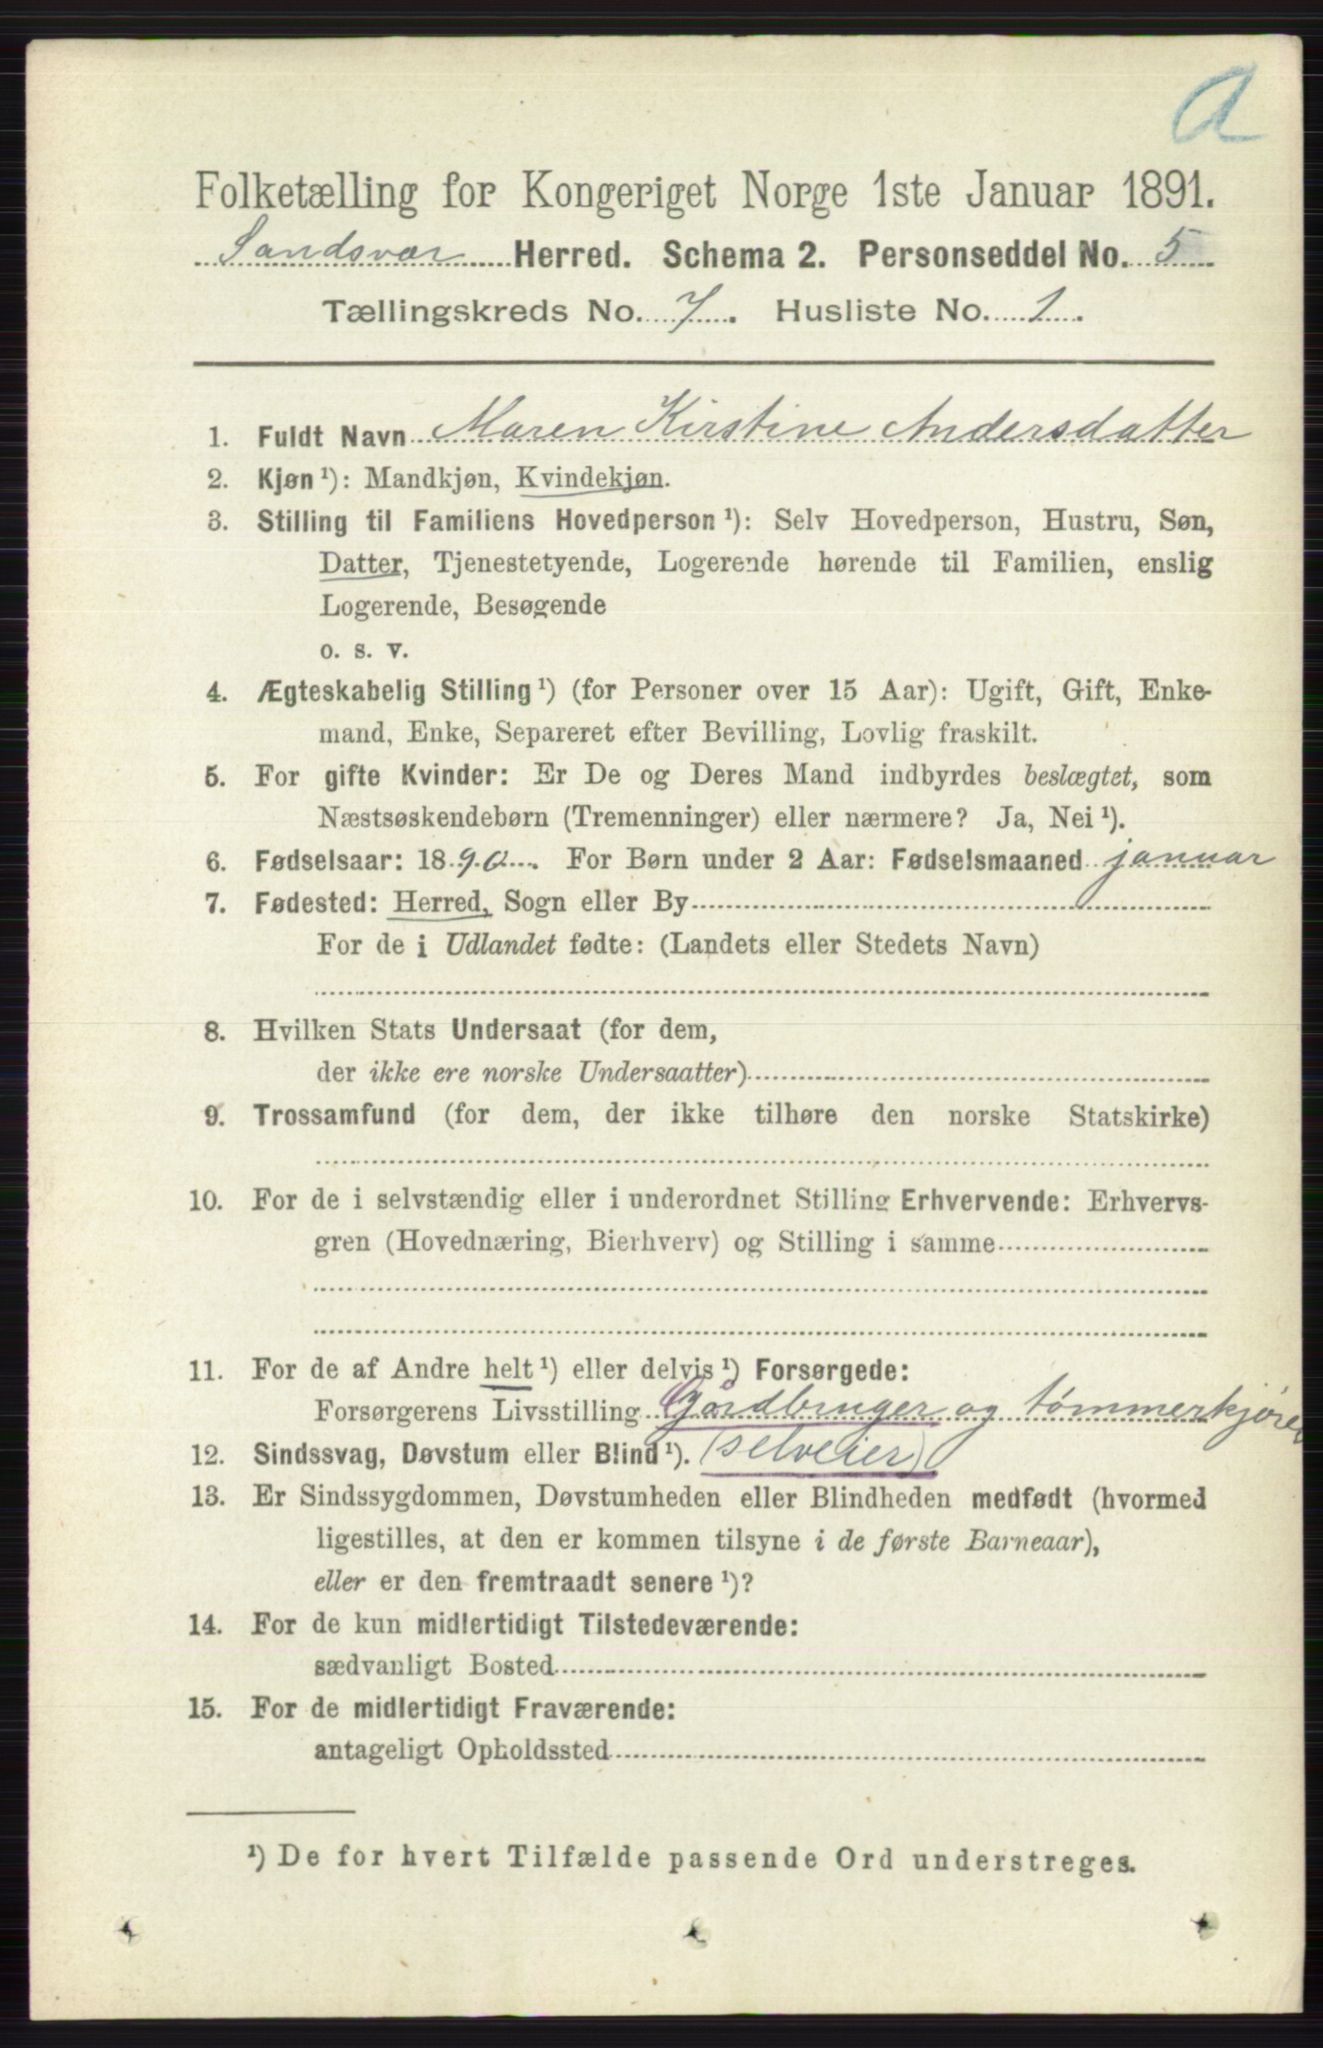 a
Folketælling for Kongeriget Norge 1ste Januar 1891.
Sandsvær Herred. Schema 2. Personseddel No. 5
Tællingskreds No. 7. Husliste No. 1.
1. Fuldt Navn Maren Kirstine Andersdatter
2. Kjøn ¹): Mandkjøn, Kvindekjøn.
3. Stilling til Familiens Hovedperson ¹): Selv Hovedperson, Hustru, Søn,
Datter, Tjenestetyende, Logerende hørende til Familien, enslig
Logerende, Besøgende
o. s. v.
4. Ægteskabelig Stilling ¹) (for Personer over 15 Aar): Ugift, Gift, Enke-
mand, Enke, Separeret efter Bevilling, Lovlig fraskilt.
5. For gifte Kvinder: Er De og Deres Mand indbyrdes beslægtet, som
Næstsøskendebørn (Tremenninger) eller nærmere? Ja, Nei ¹).
6. Fødselsaar: 1890. For Børn under 2 Aar: Fødselsmaaned januar
7. Fødested: Herred, Sogn eller By
For de i Udlandet fødte: (Landets eller Stedets Navn)
8. Hvilken Stats Undersaat (for dem,
der ikke ere norske Undersaatter)
9. Trossamfund (for dem, der ikke tilhøre den norske Statskirke)
10. For de i selvstændig eller i underordnet Stilling Erhvervende: Erhvervs-
gren (Hovednæring, Bierhverv) og Stilling i samme
11. For de af Andre helt ¹) eller delvis ¹) Forsørgede:
Forsørgerens Livsstilling Gårdbruger og tømmerkjører
12. Sindssvag, Døvstum eller Blind ¹). (selveier)
13. Er Sindssygdommen, Døvstumheden eller Blindheden medfødt (hvormed
ligestilles, at den er kommen tilsyne i de første Barneaar),
eller er den fremtraadt senere ¹)?
14. For de kun midlertidigt Tilstedeværende:
sædvanligt Bosted
15. For de midlertidigt Fraværende:
antageligt Opholdssted
¹) De for hvert Tilfælde passende Ord understreges.